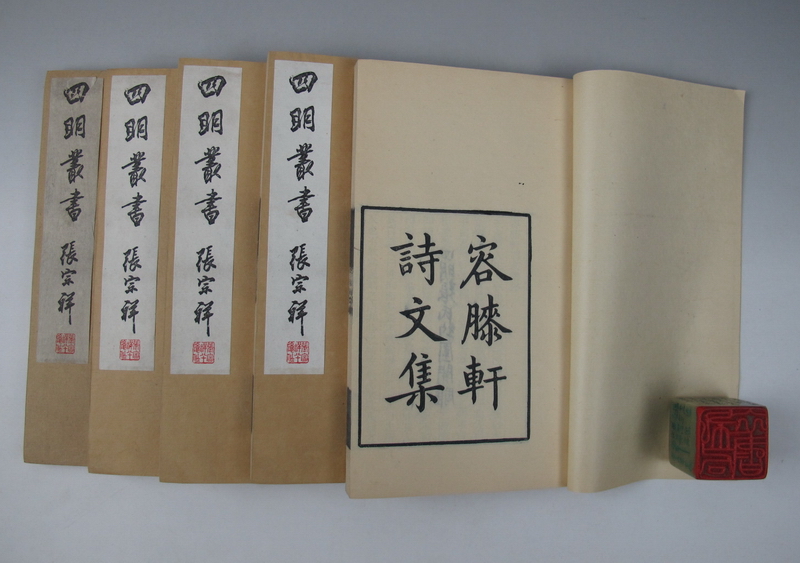 四明叢書
張宗祥
四明叢書
張宗祥
四明叢書
張宗祥
四明叢書
張宗祥
容膝軒
詩文集